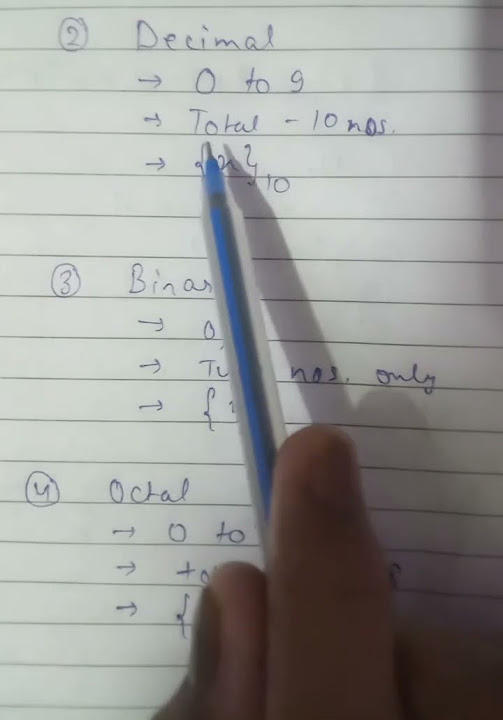 ② Decimal
→ 0 to 9
→ Total - 10 nos.
→ {x}10
③
→ 0,
→ nos. only
→ {
④ Octal
→ 0 to
→
→ {